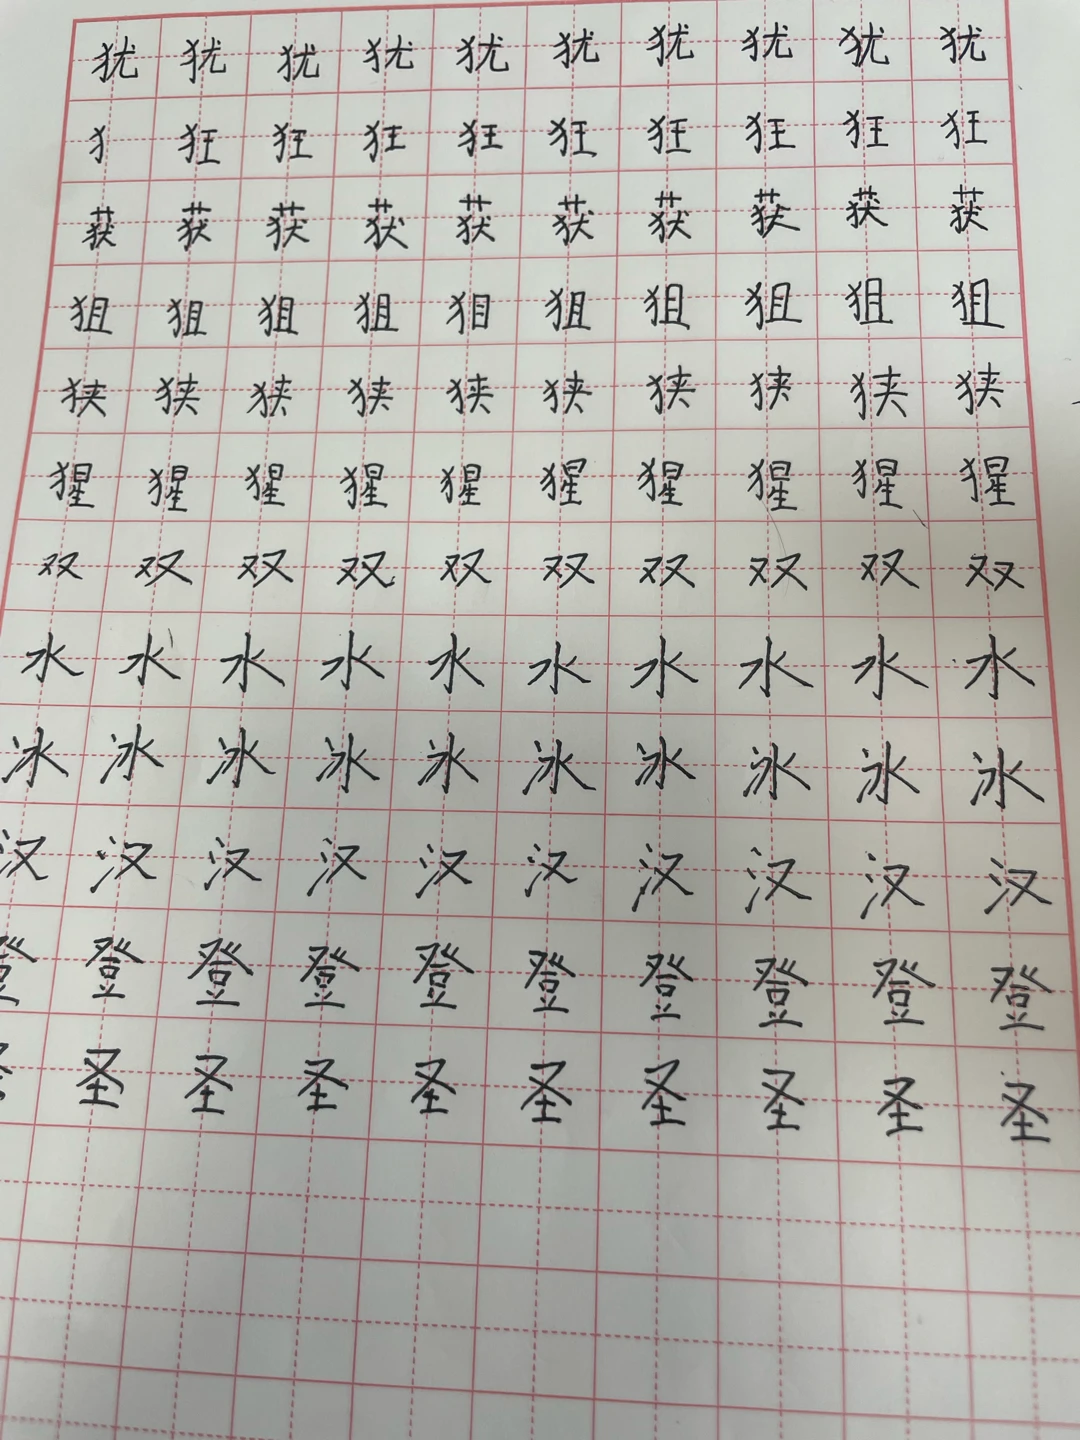 犹犹犹犹犹犹犹犹犹犹
犭狂狂狂狂狂狂狂狂狂
获获获获获获获获获获
狙狙狙狙狙狙狙狙狙狙
狭狭狭狭狭狭狭狭狭狭
猩猩猩猩猩猩猩猩猩猩
双双双双双双双双双双
水水水水水水水水水水
冰冰冰冰冰冰冰冰冰冰
汉汉汉汉汉汉汉汉汉汉
登登登登登登登登登登
圣圣圣圣圣圣圣圣圣圣